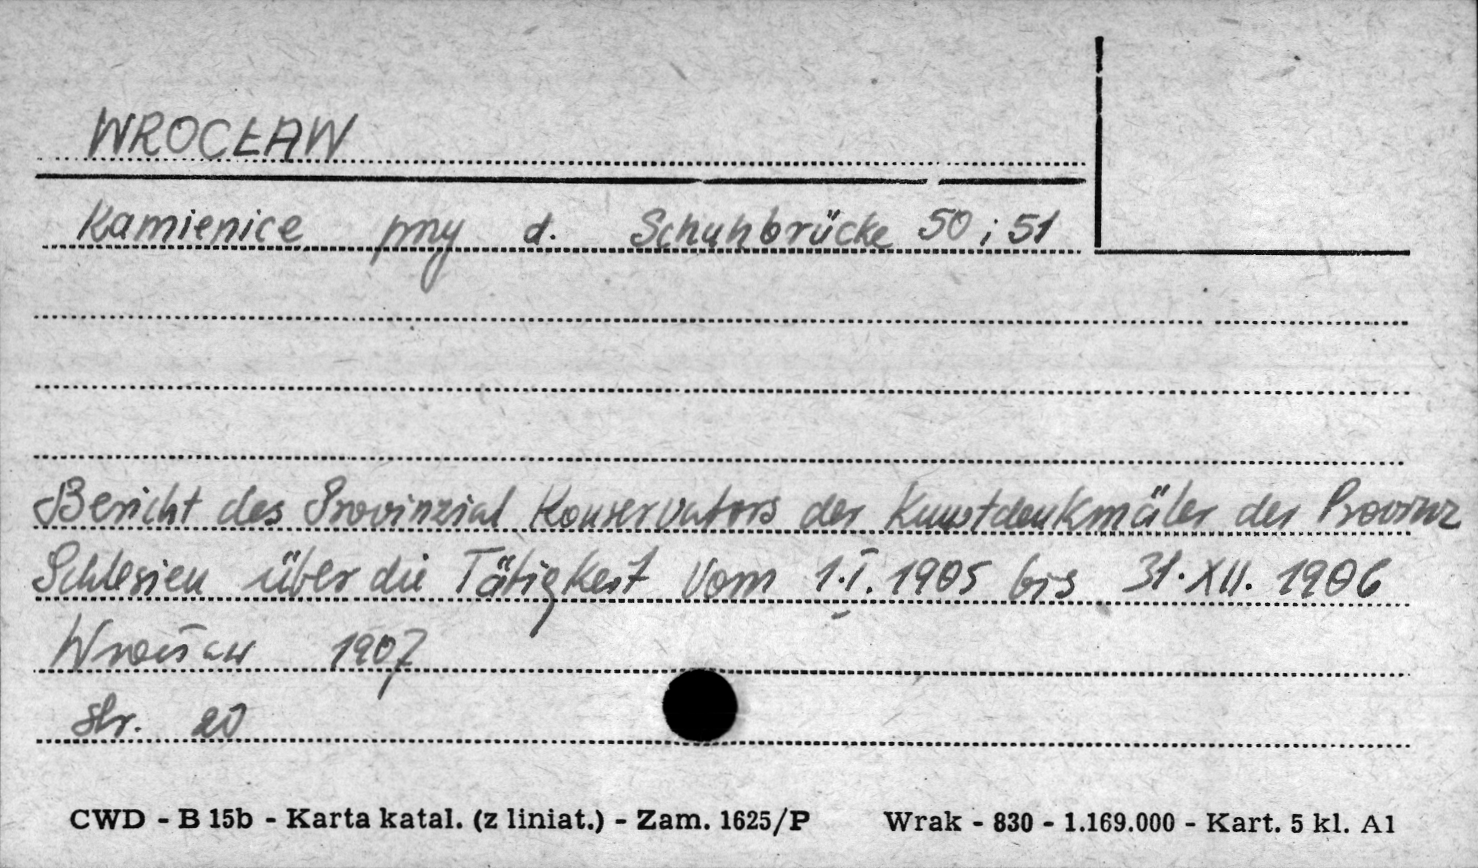 WROCŁAW
Kamienice przy d. Schuhbrücke 50 i 51
Bericht des Provinzial Konservators der Kunstdenkmäler der Provinz
Schlesien über die Tätigkeit vom 1.I.1905 bis 31.XII.1906
Wrocław 1907
str. 20
CWD - B 15b - Karta katal. (z liniat.) - Zam. 1625/P Wrak - 830 - 1.169.000 - Kart. 5 kl. A1